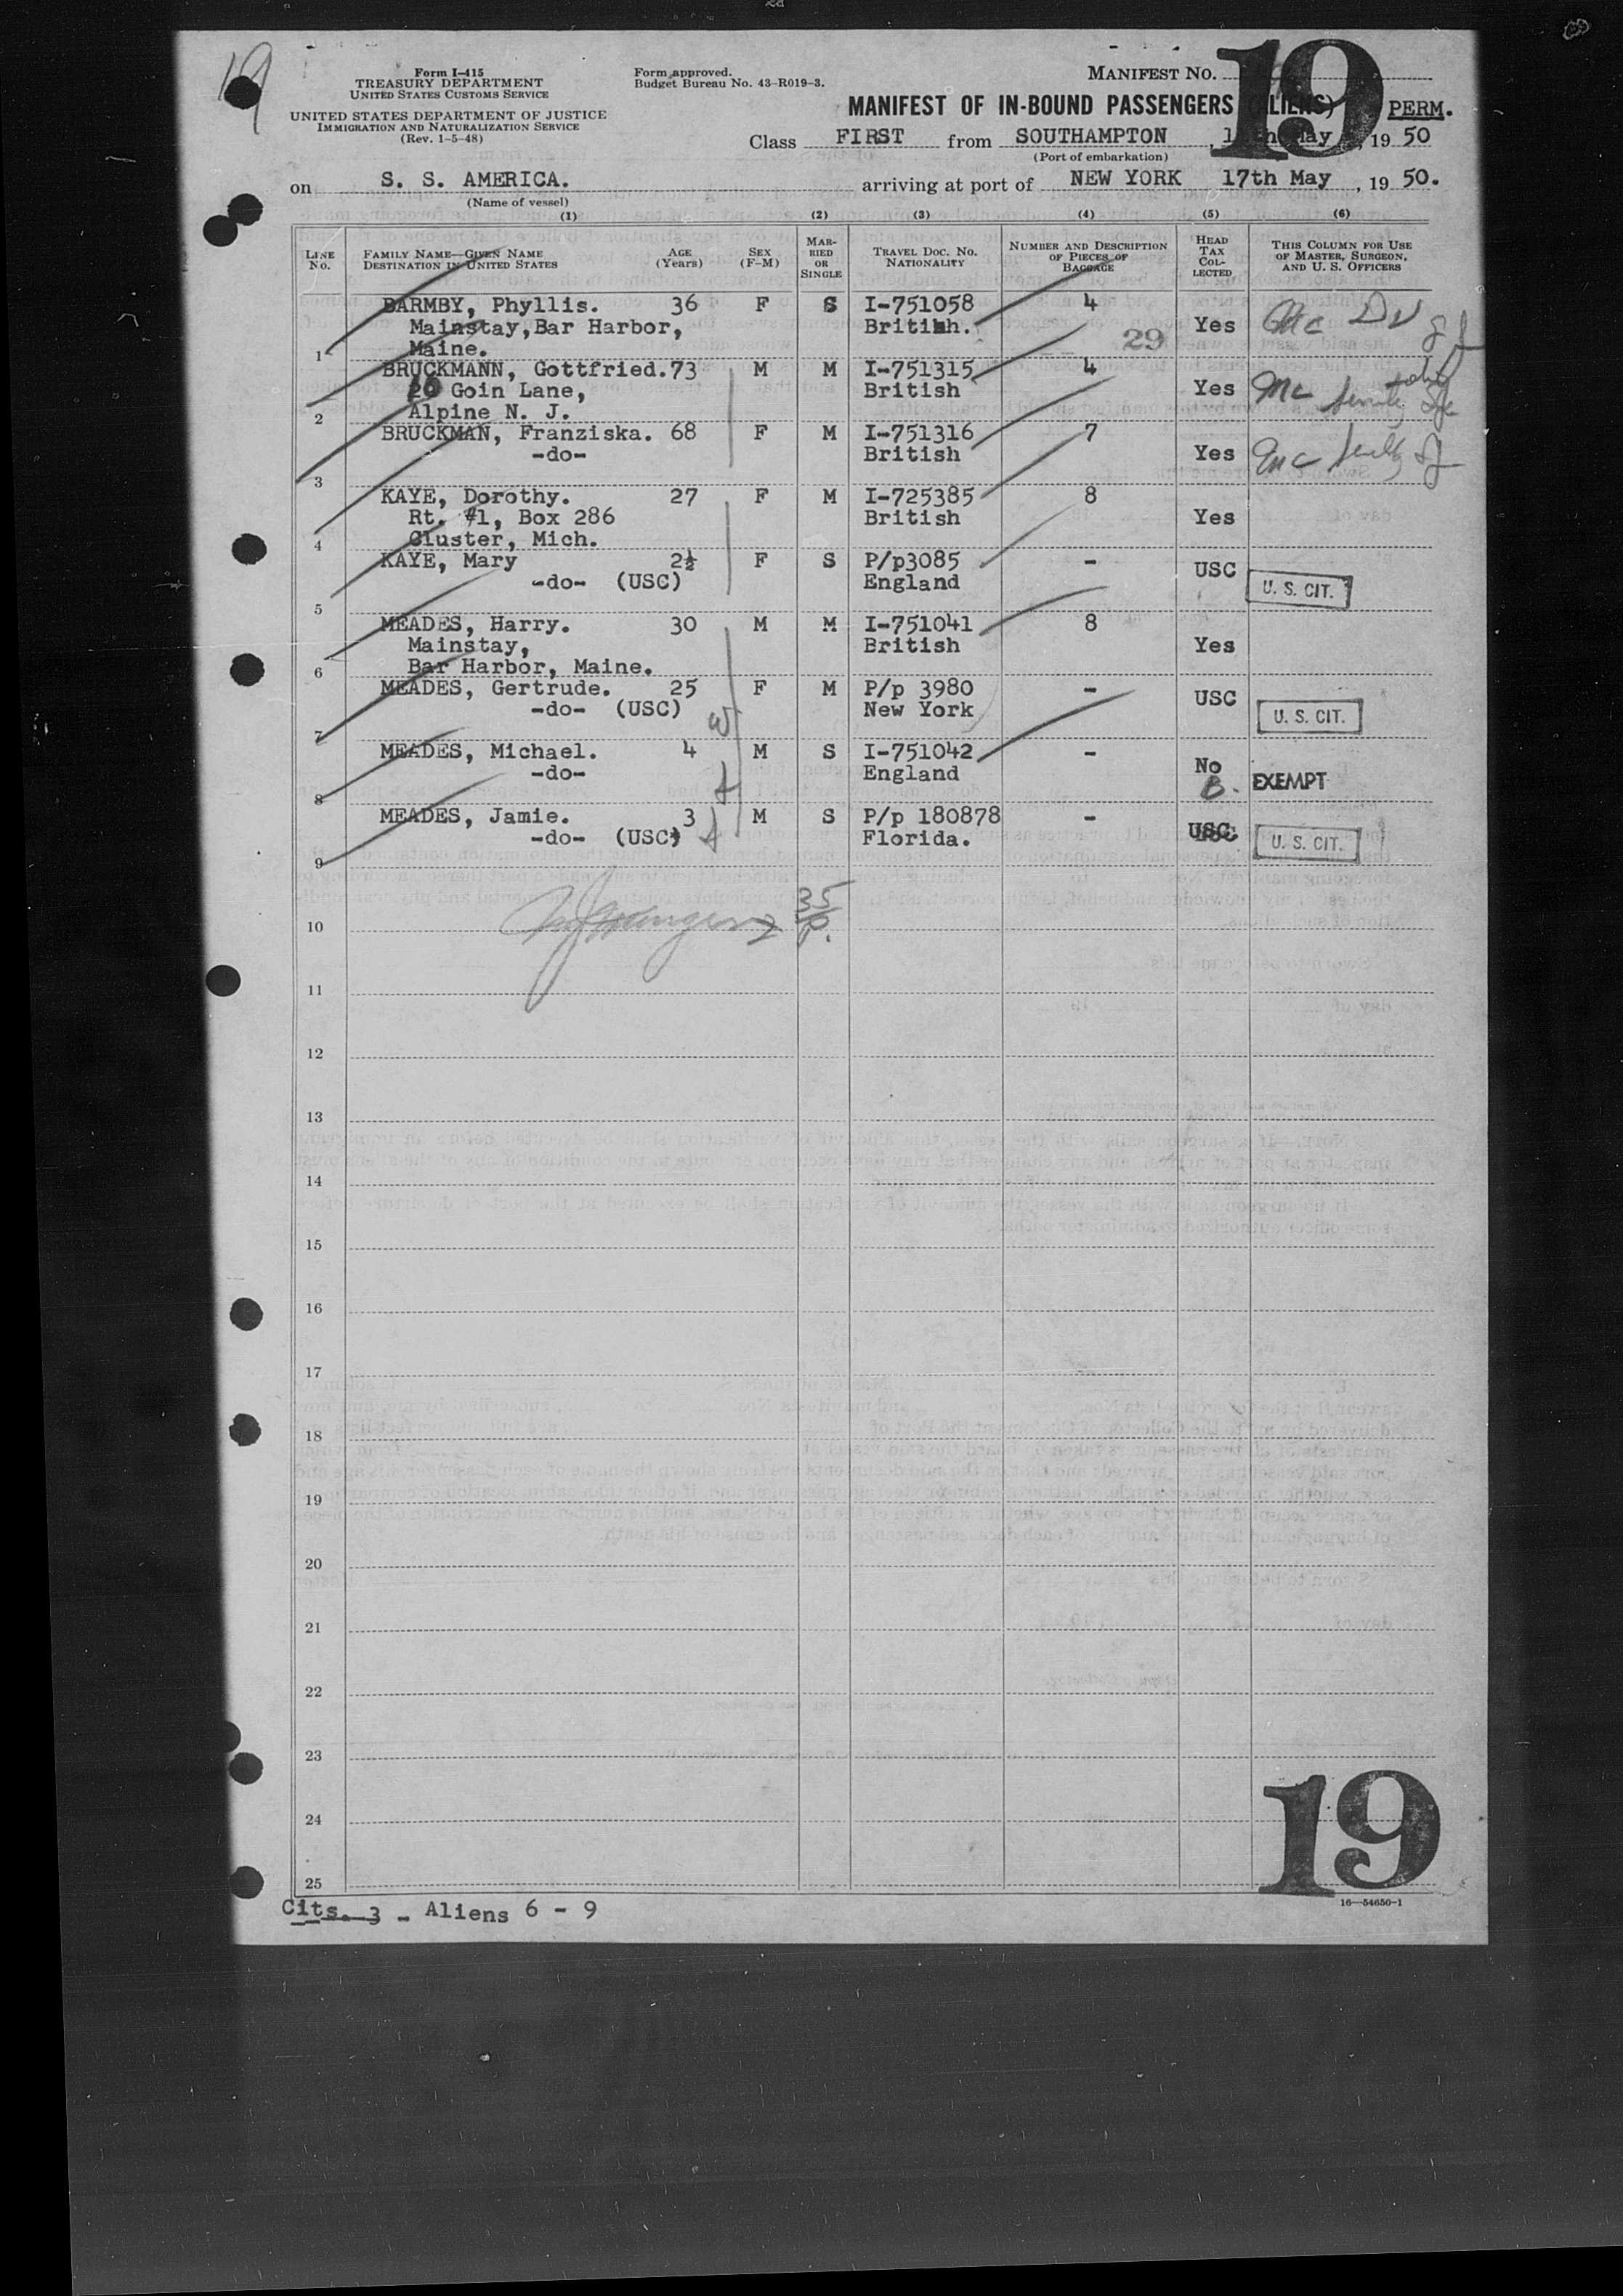 19
Form I-415
TREASURY DEPARTMENT
UNITED STATES CUSTOMS SERVICE
UNITED STATES DEPARTMENT OF JUSTICE
IMMIGRATION AND NATURALIZATION SERVICE
(Rev. 1-5-48)
Form approved.
Budget Bureau No. 43-R019-3.
MANIFEST NO. 19
MANIFEST OF IN-BOUND PASSENGERS (ALIENS) PERM.
Class FIRST from SOUTHAMPTON, May, 19 50
(Port of embarkation)
on S. S. AMERICA. arriving at port of NEW YORK 17th May, 19 50.
(Name of vessel)
(1) (2) (3) (4) (5) (6)
LINE NO. FAMILY NAME—GIVEN NAME DESTINATION IN UNITED STATES AGE (Years) SEX (F-M) MARRIED OR SINGLE TRAVEL DOC. NO. NATIONALITY NUMBER AND DESCRIPTION OF PIECES OF BAGGAGE HEAD TAX COLLECTED THIS COLUMN FOR USE OF MASTER, SURGEON, AND U. S. OFFICERS
BARMBY, Phyllis. 36 F S I-751058 4
Mainstay, Bar Harbor, British. Yes
29
1 Maine.
BRUCKMANN, Gottfried. 73 M M I-751315 4
Goin Lane, British Yes
2 Alpine N. J.
BRUCKMAN, Franziska. 68 F M I-751316 7
-do- British Yes
3
KAYE, Dorothy. 27 F M I-725385 8
Rt. #1, Box 286 British Yes
4 Cluster, Mich.
KAYE, Mary 2½ F S P/p3085 - USC
-do- (USC) England U. S. CIT.
5
MEADES, Harry. 30 M M I-751041 8
Mainstay, British Yes
6 Bar Harbor, Maine.
MEADES, Gertrude. 25 F M P/p 3980 - USC
-do- (USC) New York U. S. CIT.
7
MEADES, Michael. 4 M S I-751042 - No
-do- England B. EXEMPT
8
MEADES, Jamie. 3 M S P/p 180878 - USC
-do- (USC) Florida. U. S. CIT.
9
10
11
12
13
14
15
16
17
18
19
20
21
22
23
24
25
19
16—54650-1
Cits. 3 - Aliens 6 - 9